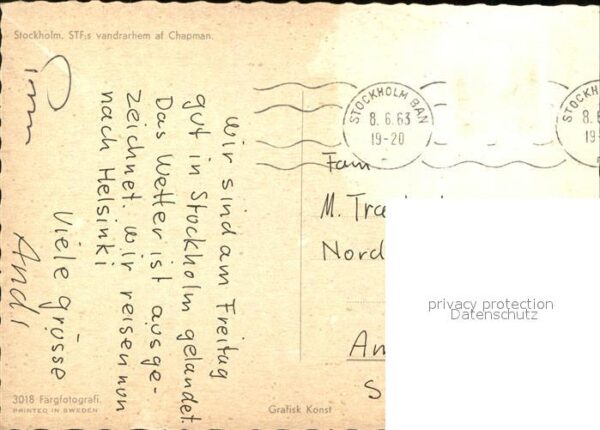 Stockholm. STF:s vandrarhem af Chapman.
wir sind am Freitag
gut in Stockholm gelandet.
Das Wetter ist ausge-
zeichnet. wir reisen nun
nach Helsinki
Viele grüsse
Andi
STOCKHOLM BAN
8.6.63
19-20
STOCKH
8.6
19-
Fam
M.
Nord
privacy protection
Datenschutz
An
S
3018 Färgfotografi.
PRINTED IN SWEDEN
Grafisk Konst